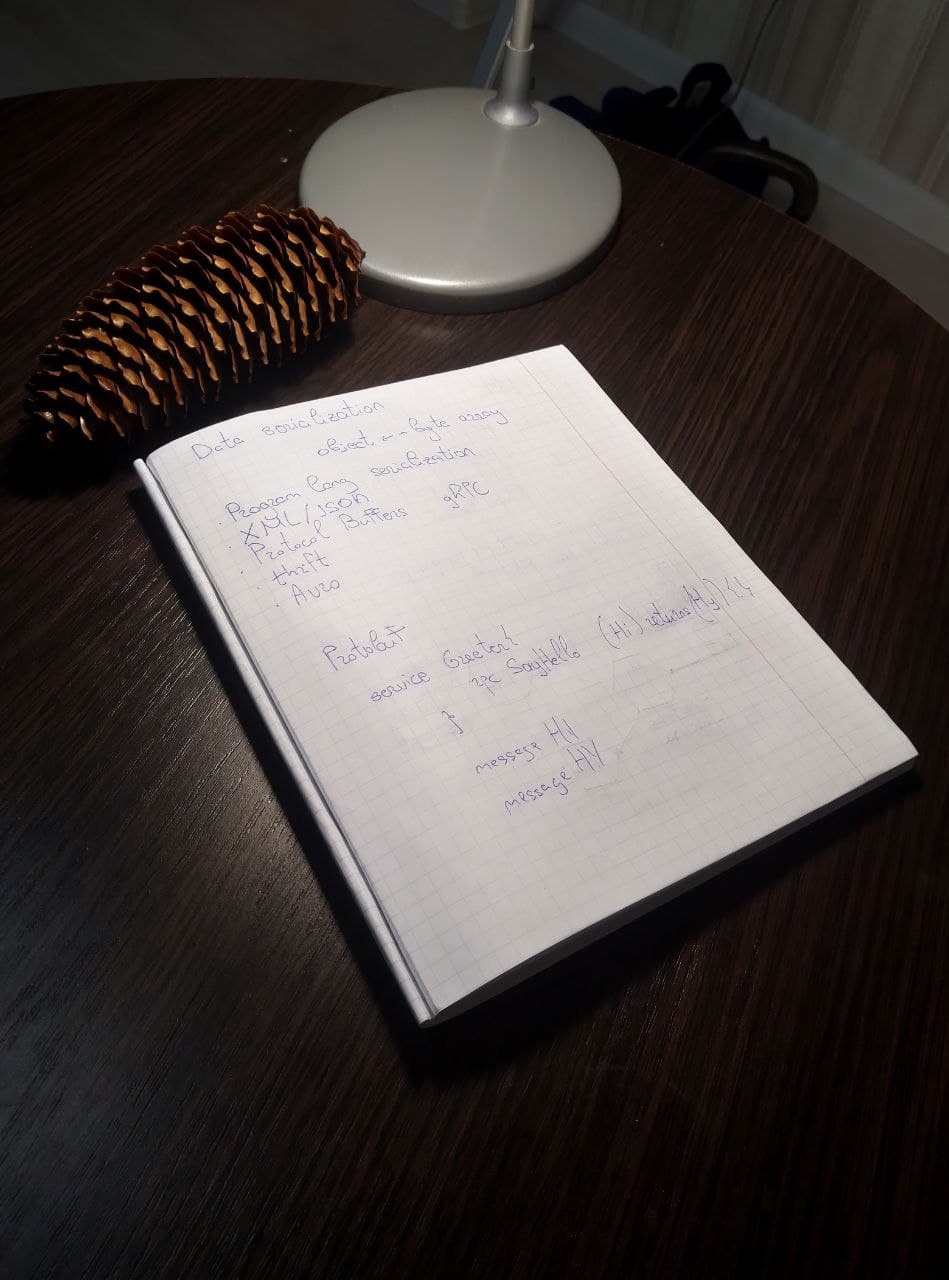 Data serialization
object ← - byte array
· Program lang serialization
· XML/JSON
· Protocol Buffers gRPC
· thrift
· Avro
Protobuf
service Greeter {
rpc SayHello (Hi) returns (Hy) {}
}
message Hi
message HY